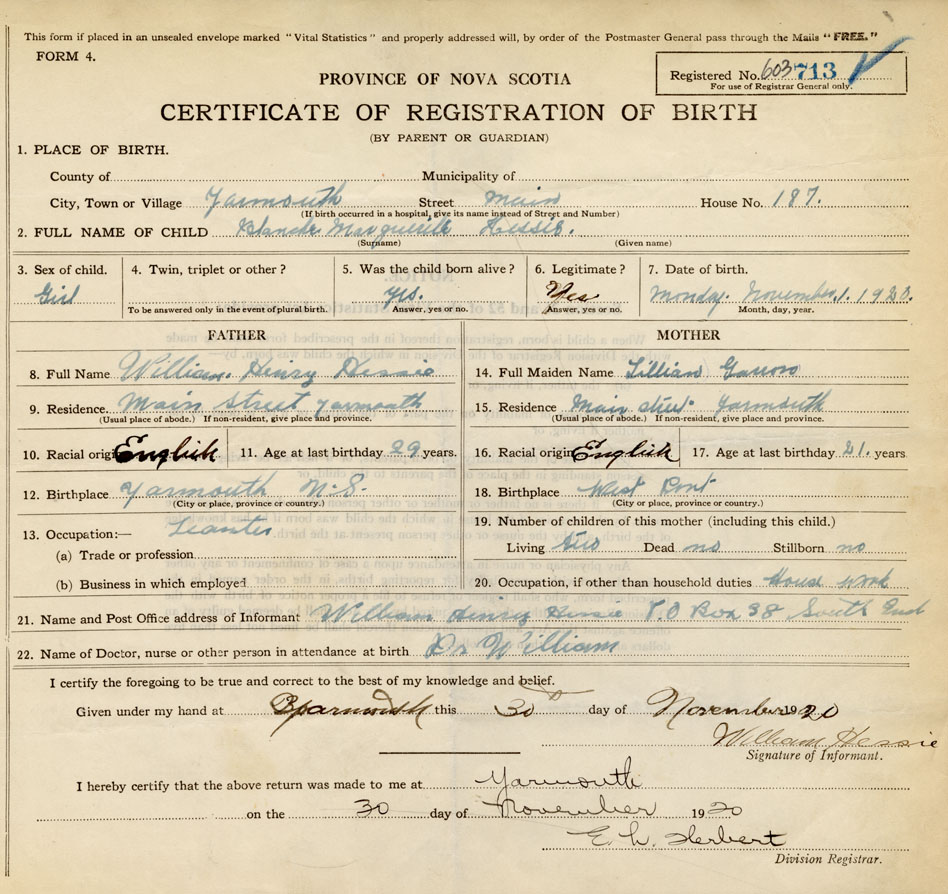 This form if placed in an unsealed envelope marked "Vital Statistics" and properly addressed will, by order of the Postmaster General pass through the Mails "FREE."
FORM 4.
Registered No. 603 713
For use of Registrar General only.
PROVINCE OF NOVA SCOTIA
CERTIFICATE OF REGISTRATION OF BIRTH
(BY PARENT OR GUARDIAN)
1. PLACE OF BIRTH.
County of Municipality of
City, Town or Village Yarmouth Street Main House No. 187.
(If birth occurred in a hospital, give its name instead of Street and Number)
2. FULL NAME OF CHILD Blanche Marguerite Hessie.
(Surname) (Given name)
3. Sex of child. 4. Twin, triplet or other? 5. Was the child born alive? 6. Legitimate? 7. Date of birth.
Girl yes. Yes Monday. November. 1. 1920.
To be answered only in the event of plural birth. Answer, yes or no. Answer, yes or no. Month, day, year.
FATHER MOTHER
8. Full Name William. Henry Hessie 14. Full Maiden Name Lillian
9. Residence. Main Street Yarmouth 15. Residence Main street Yarmouth
(Usual place of abode.) If non-resident, give place and province. (Usual place of abode.) If non-resident, give place and province.
10. Racial origin English 11. Age at last birthday 29 years. 16. Racial origin English 17. Age at last birthday 21. years
12. Birthplace Yarmouth N.S. 18. Birthplace West Pont
(City or place, province or country.) (City or place, province or country.)
13. Occupation:— 19. Number of children of this mother (including this child.)
(a) Trade or profession Living two Dead no Stillborn no
(b) Business in which employed 20. Occupation, if other than household duties House work
21. Name and Post Office address of Informant William Henry Hessie P.O Box 38 South End
22. Name of Doctor, nurse or other person in attendance at birth Dr William
I certify the foregoing to be true and correct to the best of my knowledge and belief.
Given under my hand at Yarmouth this 30 day of November 1920
William Hessie
Signature of Informant.
I hereby certify that the above return was made to me at Yarmouth
on the 30 day of November 1920
E. h. Herbert
Division Registrar.